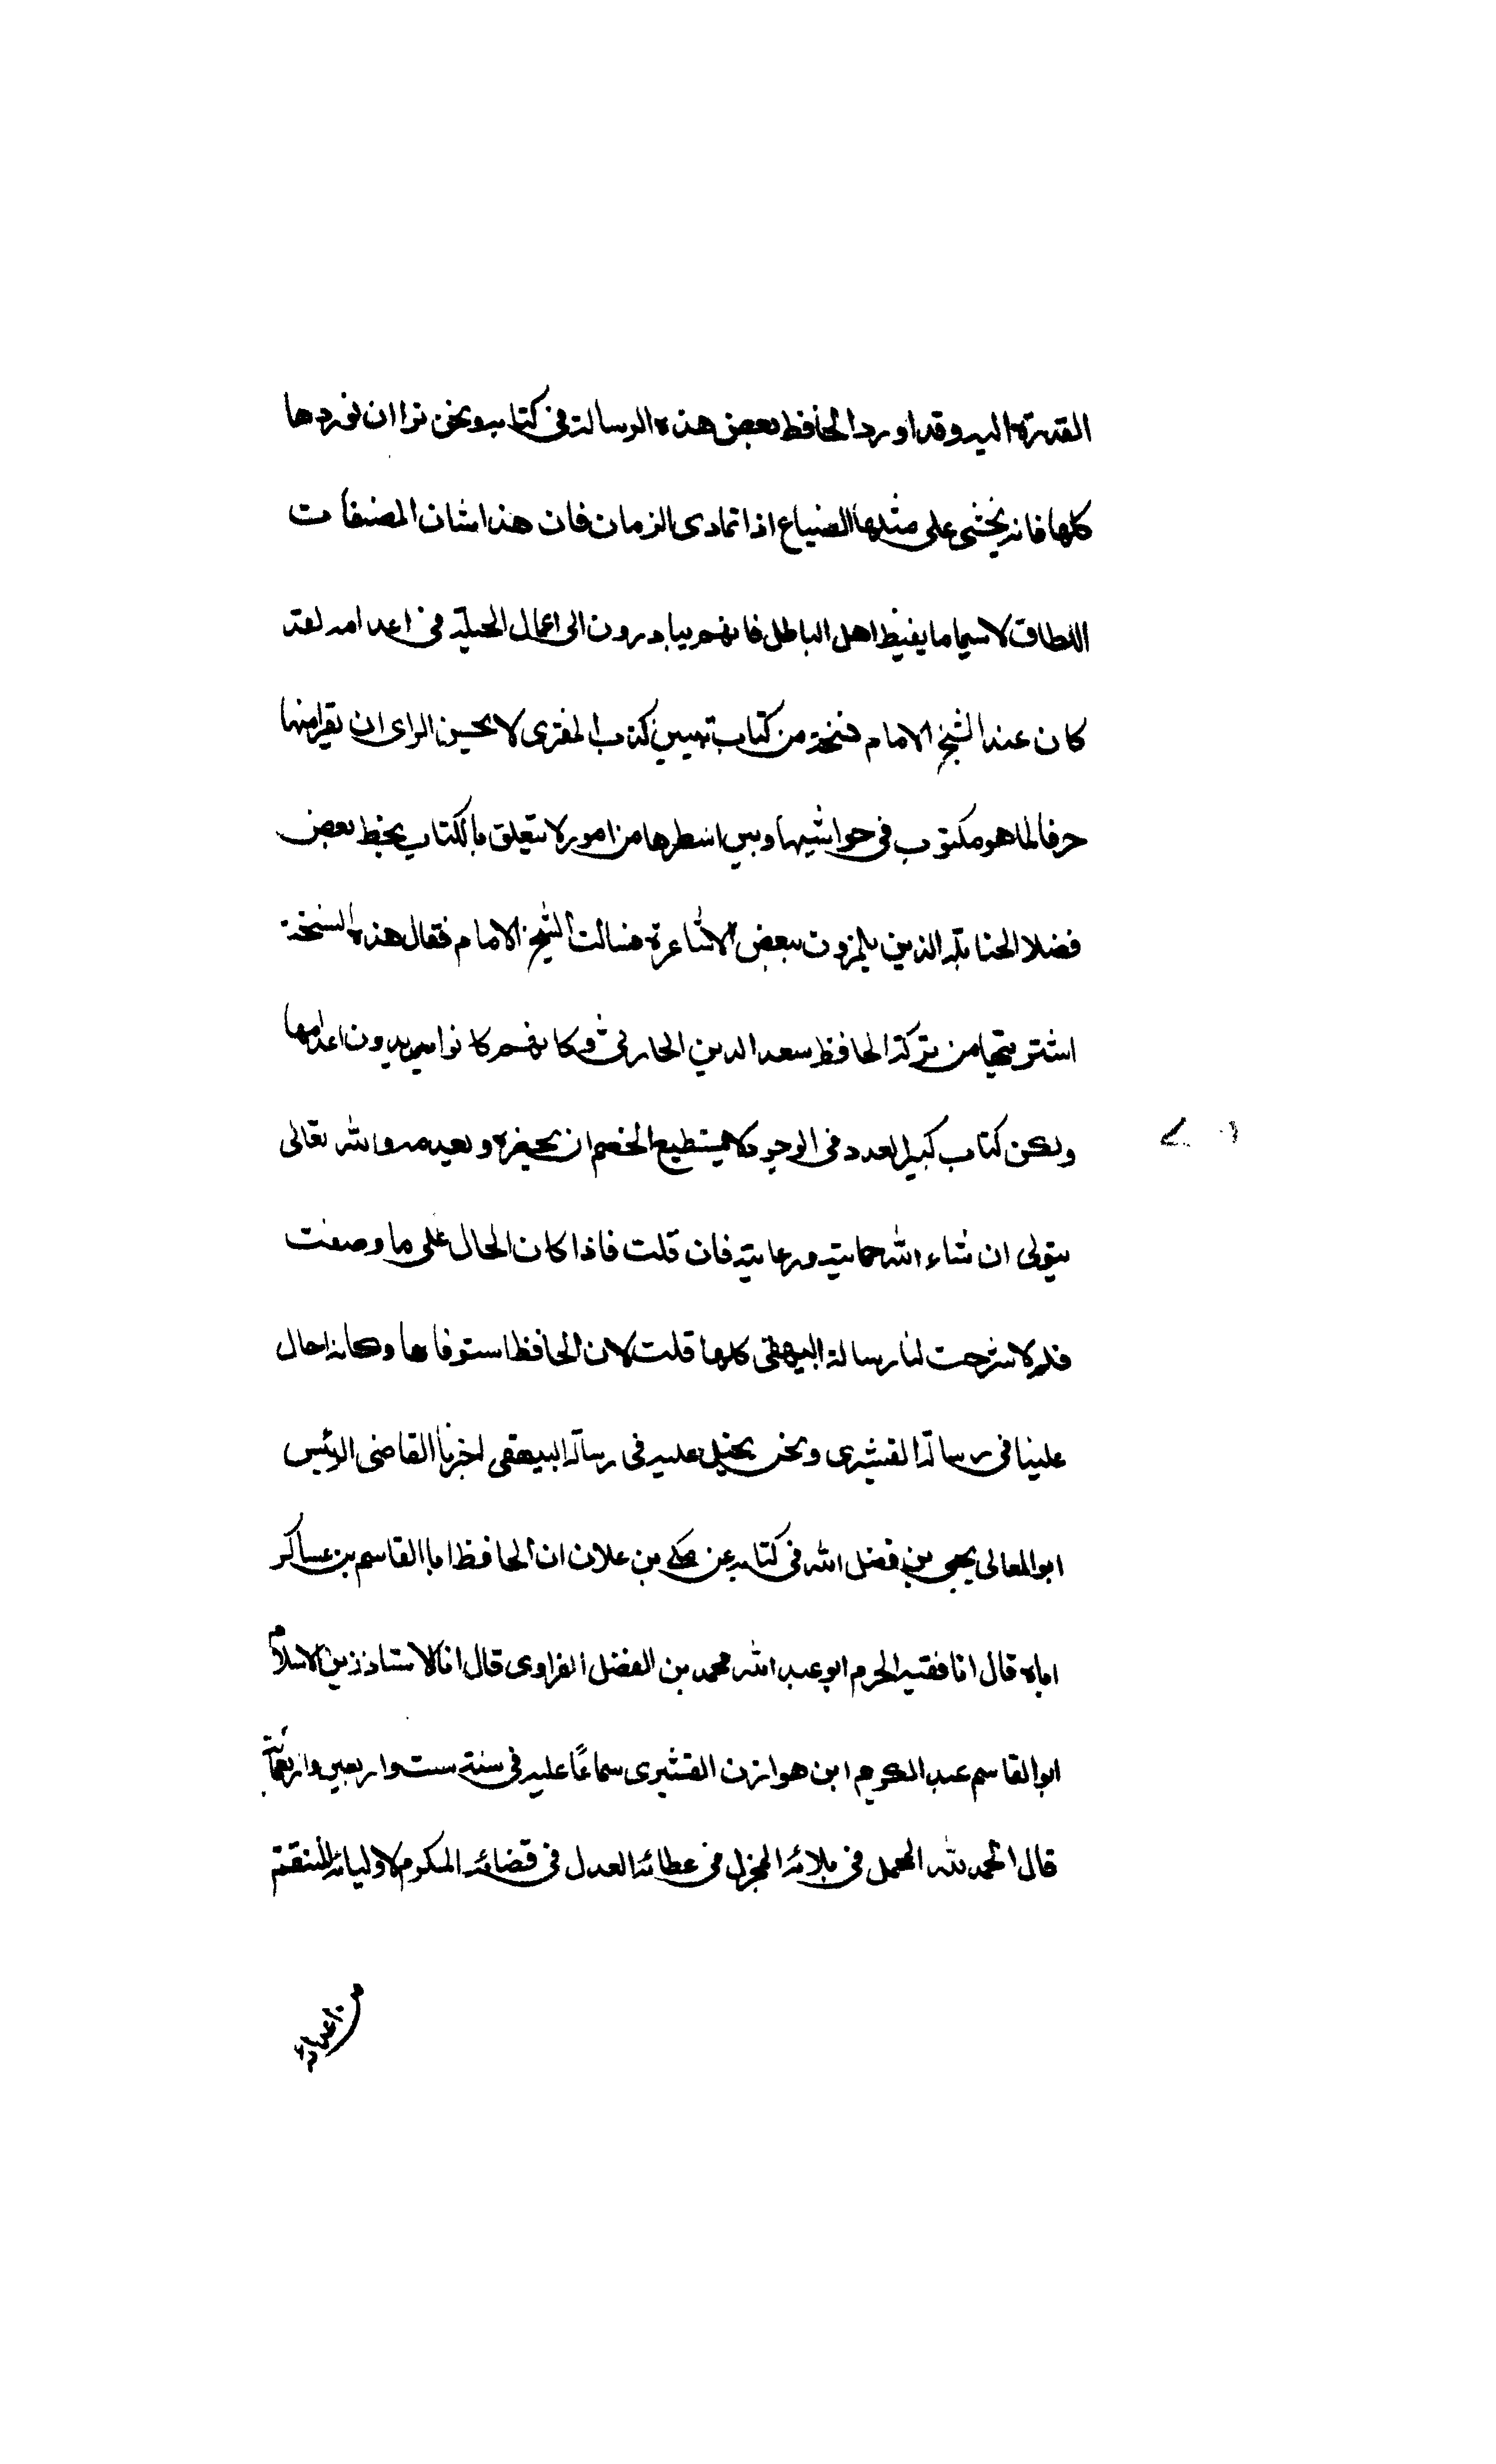 القدرة اليه وقد اورد الحافظ بعض هذه الرسالة في كتابه ونحن نرا ان نوردها
كلها فانه يخشى على مثلها الضياع اذا تمادى الزمان فان هذا شان المصنفات
اللطاف لا سيما ما يغيظ اهل الباطل فانهم يبادرون الى اعمال الحيلة في اعدامه لقد
كان عند الشيخ الامام نسخة من كتاب تبيين كذب المفترى لا يحسن الراى ان يقرا منها
حرفا لما هو مكتوب في حواشيها وبين اسطرها من امور لا تتعلق بالكتاب بخط بعض
فضلا الحنابلة الذين يلمزون ببعض الاشاعرة فسالت الشيخ الامام فقال هذه النسخة
اشتريتها من تركة الحافظ سعد الدين الحارثي وكانهم كانوا يريدون اعدامها
ولكن كتاب كبير العدد في الوجود لا يستطيع الخصم ان يحضره ويعدمه والله تعالى
يتولى ان شاء الله حمايته ورعايته فان قلت فاذا كان الحال على ما وصفت
فلم لا شرحت لنا رسالة البيهقى كلها قلت لان الحافظ استوفاها وكانه احال
علينا في رسالة القشيرى ونحن نحيل عليه في رسالة البيهقى اخبرنا القاضى الرئيس
ابو المعالى يحيى بن فضل الله في كتابه عن مكي بن علان ان الحافظ ابا القاسم بن عساكر
اباه قال انا فقيه الحرم ابو عبد الله محمد بن الفضل الفراوى قال انا الاستاذ زين الاسلام
ابو القاسم عبد الكريم ابن هوازن القشيرى سماعًا عليه في سنة ست واربعين واربعمائة
قال الحمد لله المجمل في بلائه المجزل في عطائه العدل في قضائه المكرم لاوليائه المنتقم